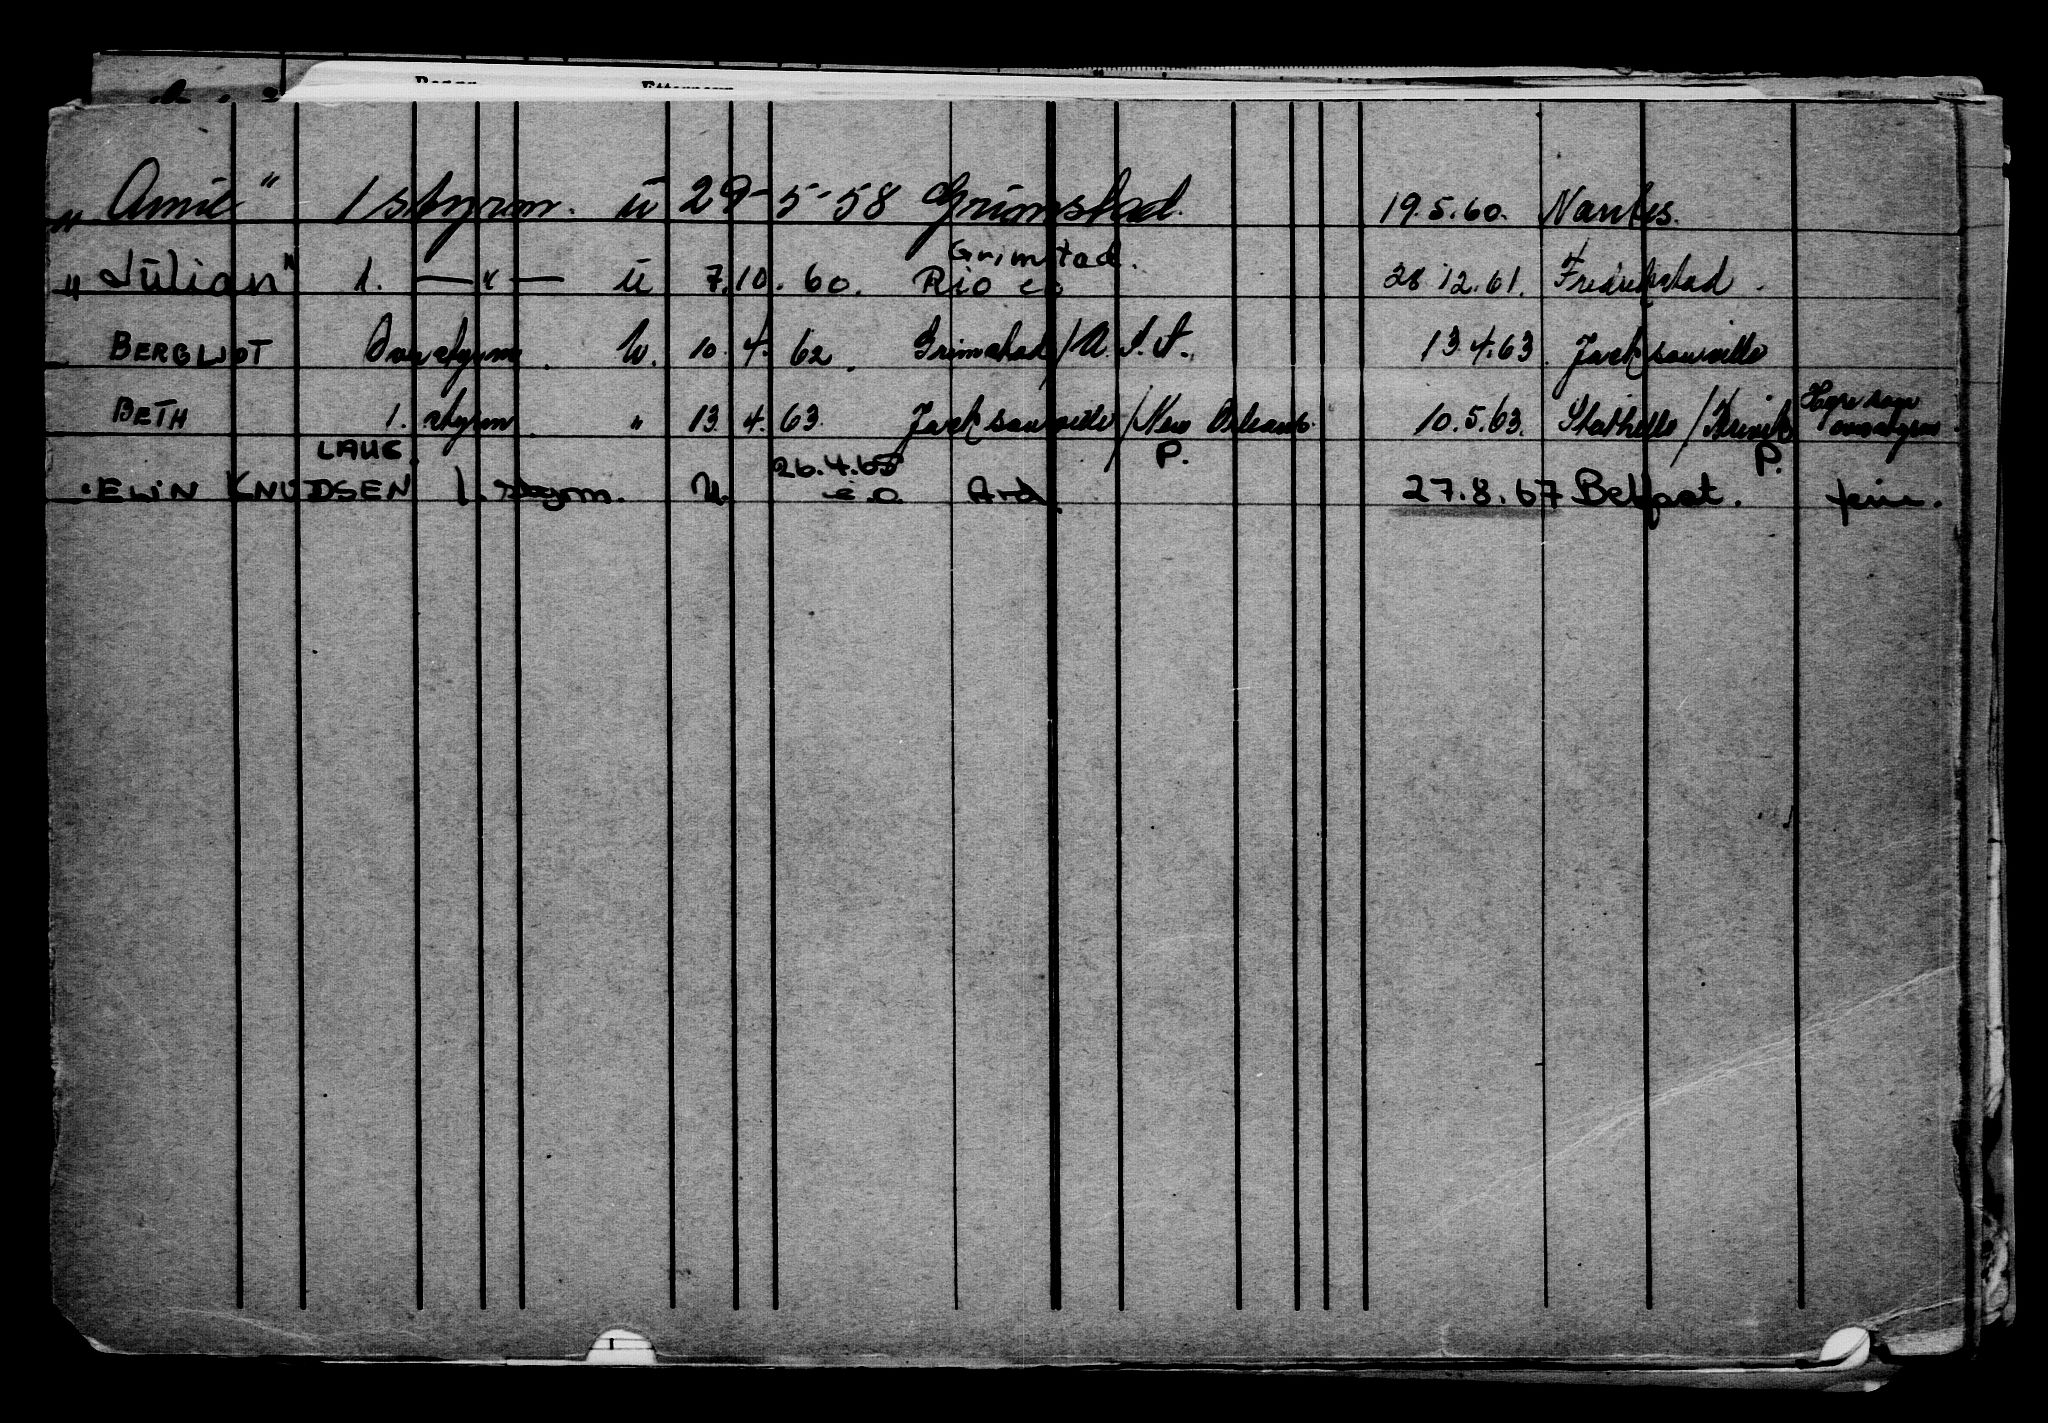 „ Amie" 1 styrm. ü 29-5-58 Grimstad. 19.5.60. Nantes.
Grimstad.
„ Julian" 1. — " — ü 7.10.60. Rio 28.12.61. Fredrikstad.
BERGLJOT Overstyrm. U. 10.4.62. Grimstad / A. 13.4.63. Jacksonville
BETH 1. styrm. " 13.4.63. Jacksonville / New Orleans. 10.5.63. Stathelle /
LAUG. 26.4.65 P. P.
ELIN KNUDSEN 1. styrm. U. e.o. Ard. 27.8.67 Belfast. ferie.